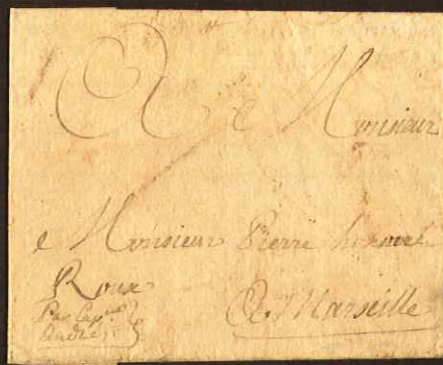 A Monsieur
Monsieur Pierre honnoré
Roux
Par Cap.ne
André
A Marseille